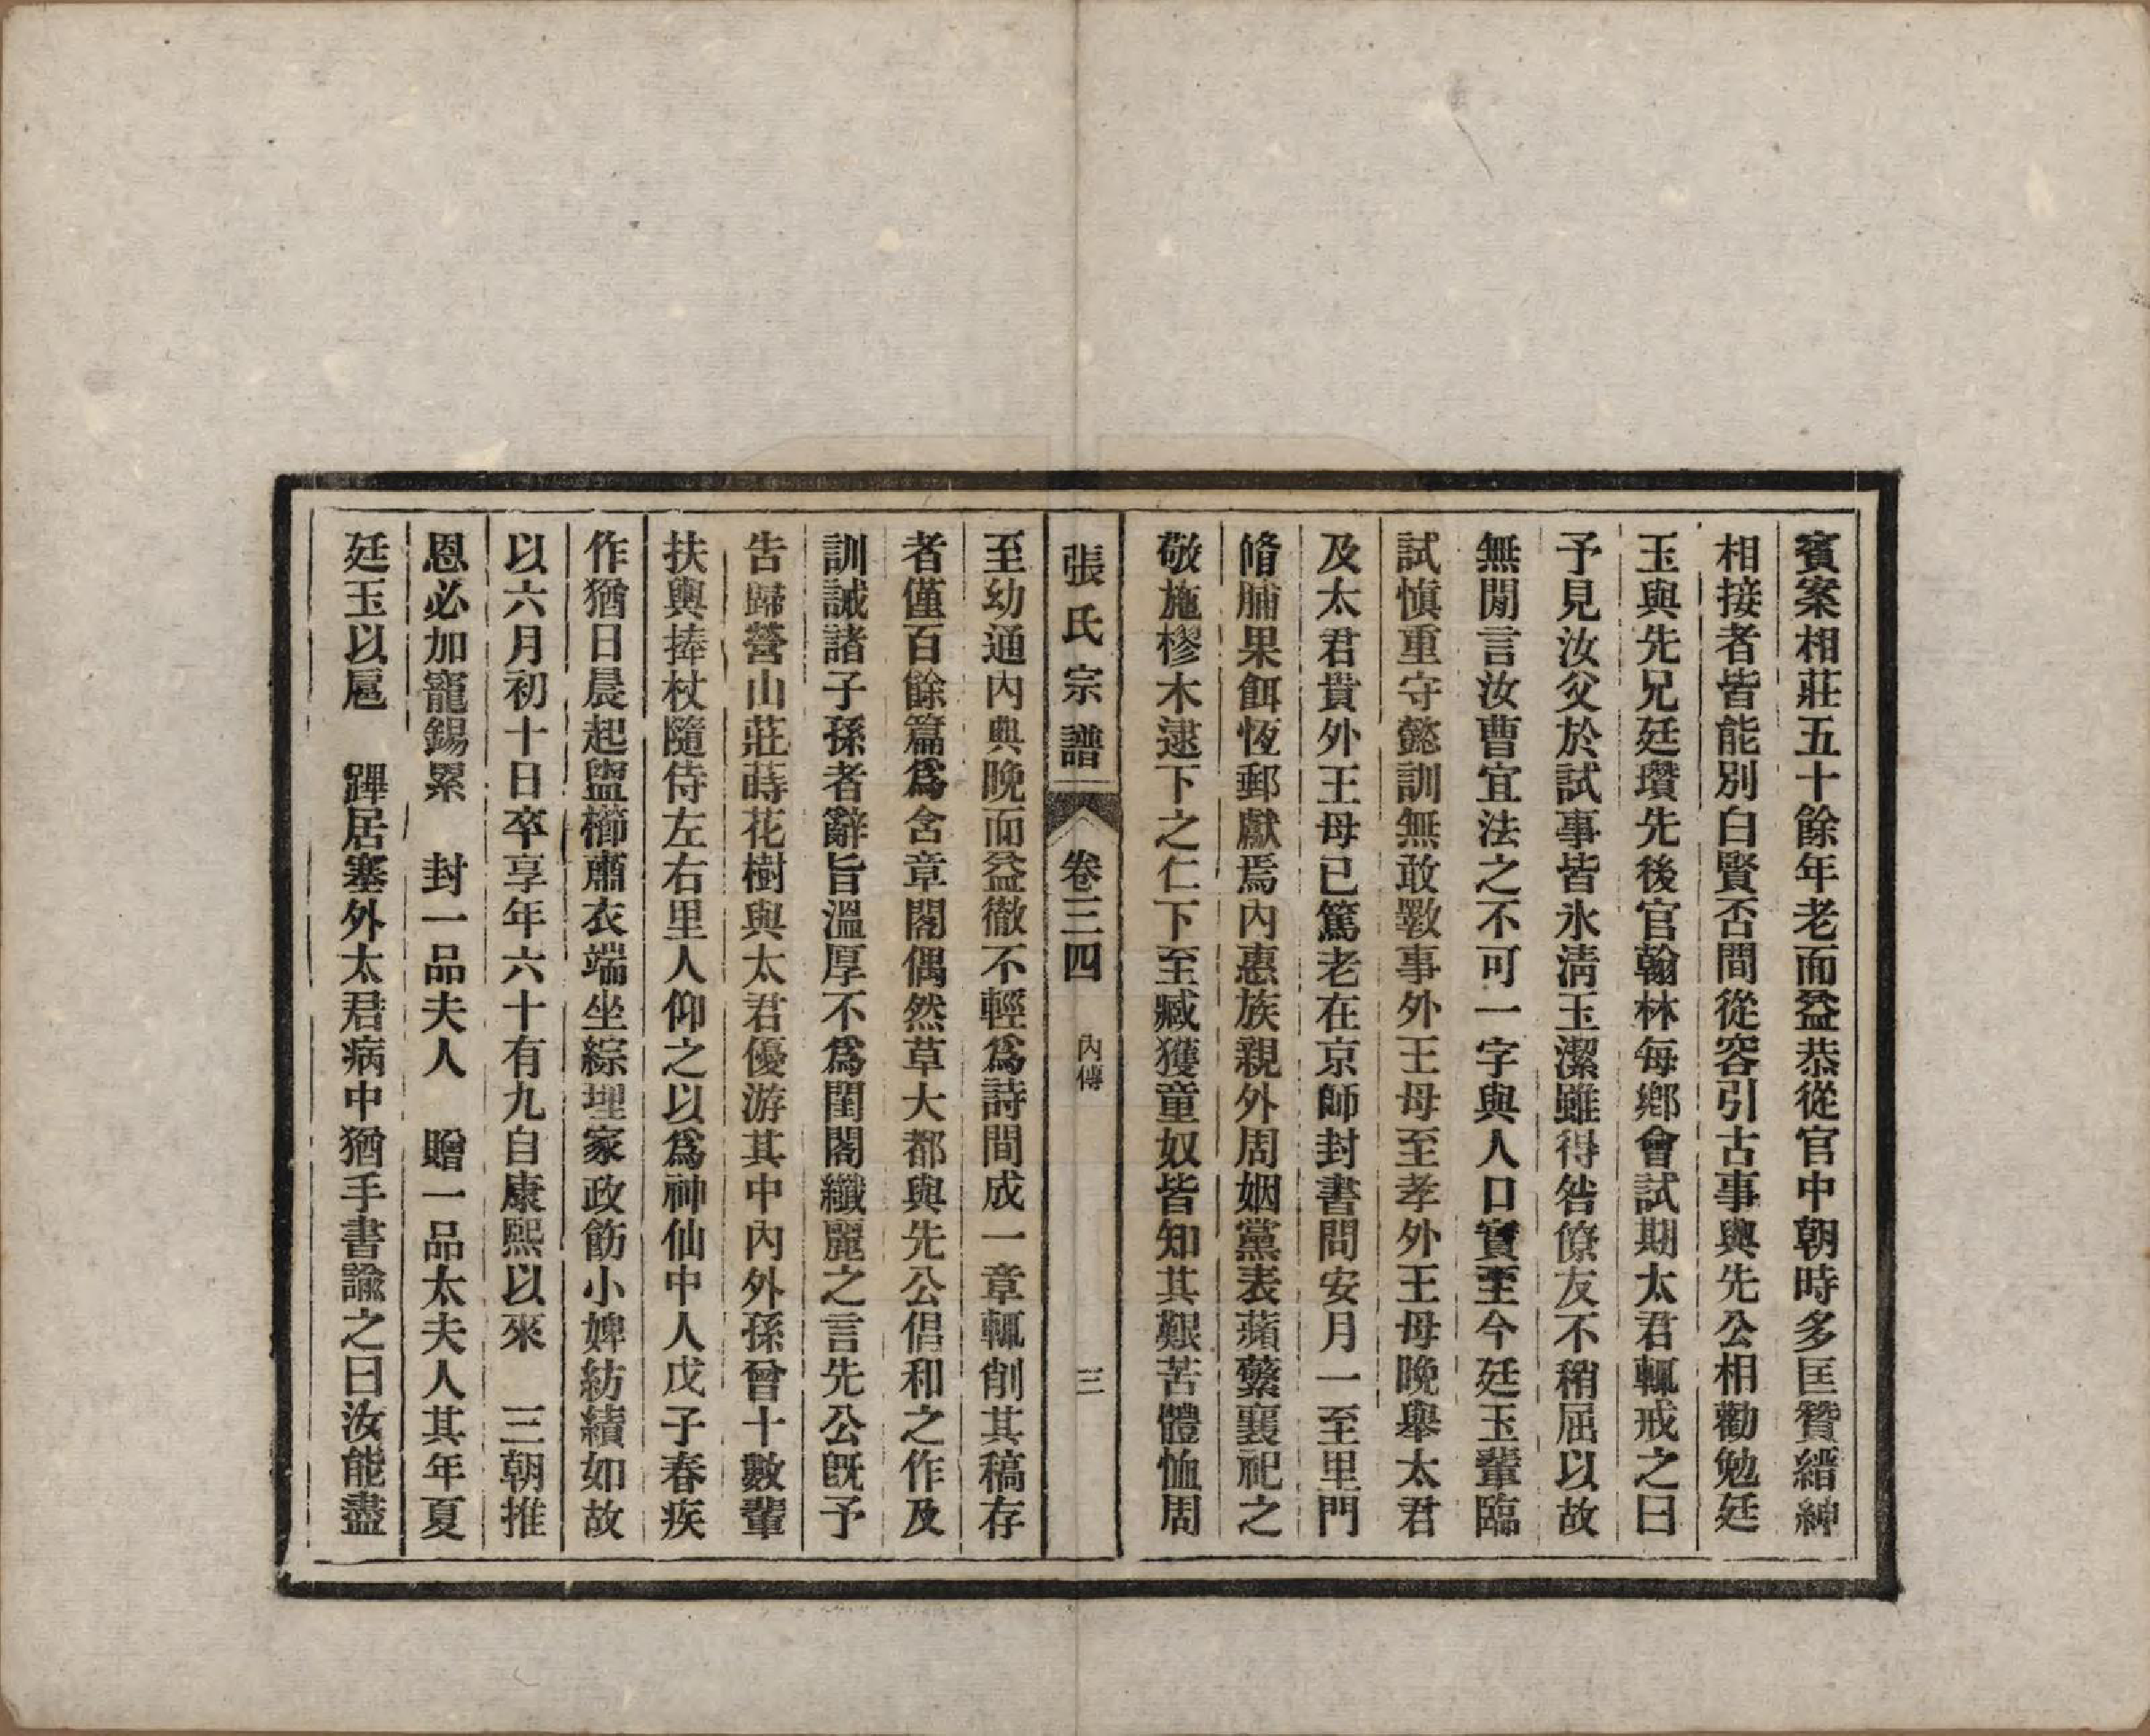 賓案相莊五十餘年老而益恭從官中朝時多匡贊縉紳
相接者皆能別白賢否間從容引古事與先公相勸勉廷
玉與先兄廷瓚先後官翰林每鄉會試期太君輒戒之曰
予見汝父於試事皆氷淸玉潔雖得咎僚友不稍屈以故
無閒言汝曹宜法之不可一字與人口實至今廷玉輩臨
試愼重守懿訓無敢斁事外王母至孝外王母晚舉太君
及太君貴外王母已篤老在京師封書問安月一至里門
脩脯果餌恆郵獻焉內惠族親外周姻黨表蘋蘩襄祀之
敬施樛木逮下之仁下至臧獲童奴皆知其艱苦體恤周
張氏宗譜
卷三四
內傳
三
至幼通內典晚而益徹不輕爲詩間成一章輒削其稿存
者僅百餘篇爲含章閣偶然草大都與先公倡和之作及
訓誡諸子孫者辭旨溫厚不爲閨閣纖麗之言先公旣予
告歸營山莊蒔花樹與太君優游其中內外孫曾十數輩
扶輿捧杖隨侍左右里人仰之以爲神仙中人戊子春疾
作猶日晨起盥櫛肅衣端坐綜理家政飭小婢紡績如故
以六月初十日卒享年六十有九自康熙以來　三朝推
恩必加寵錫累　封一品夫人　贈一品太夫人其年夏
廷玉以扈　蹕居塞外太君病中猶手書諭之曰汝能盡